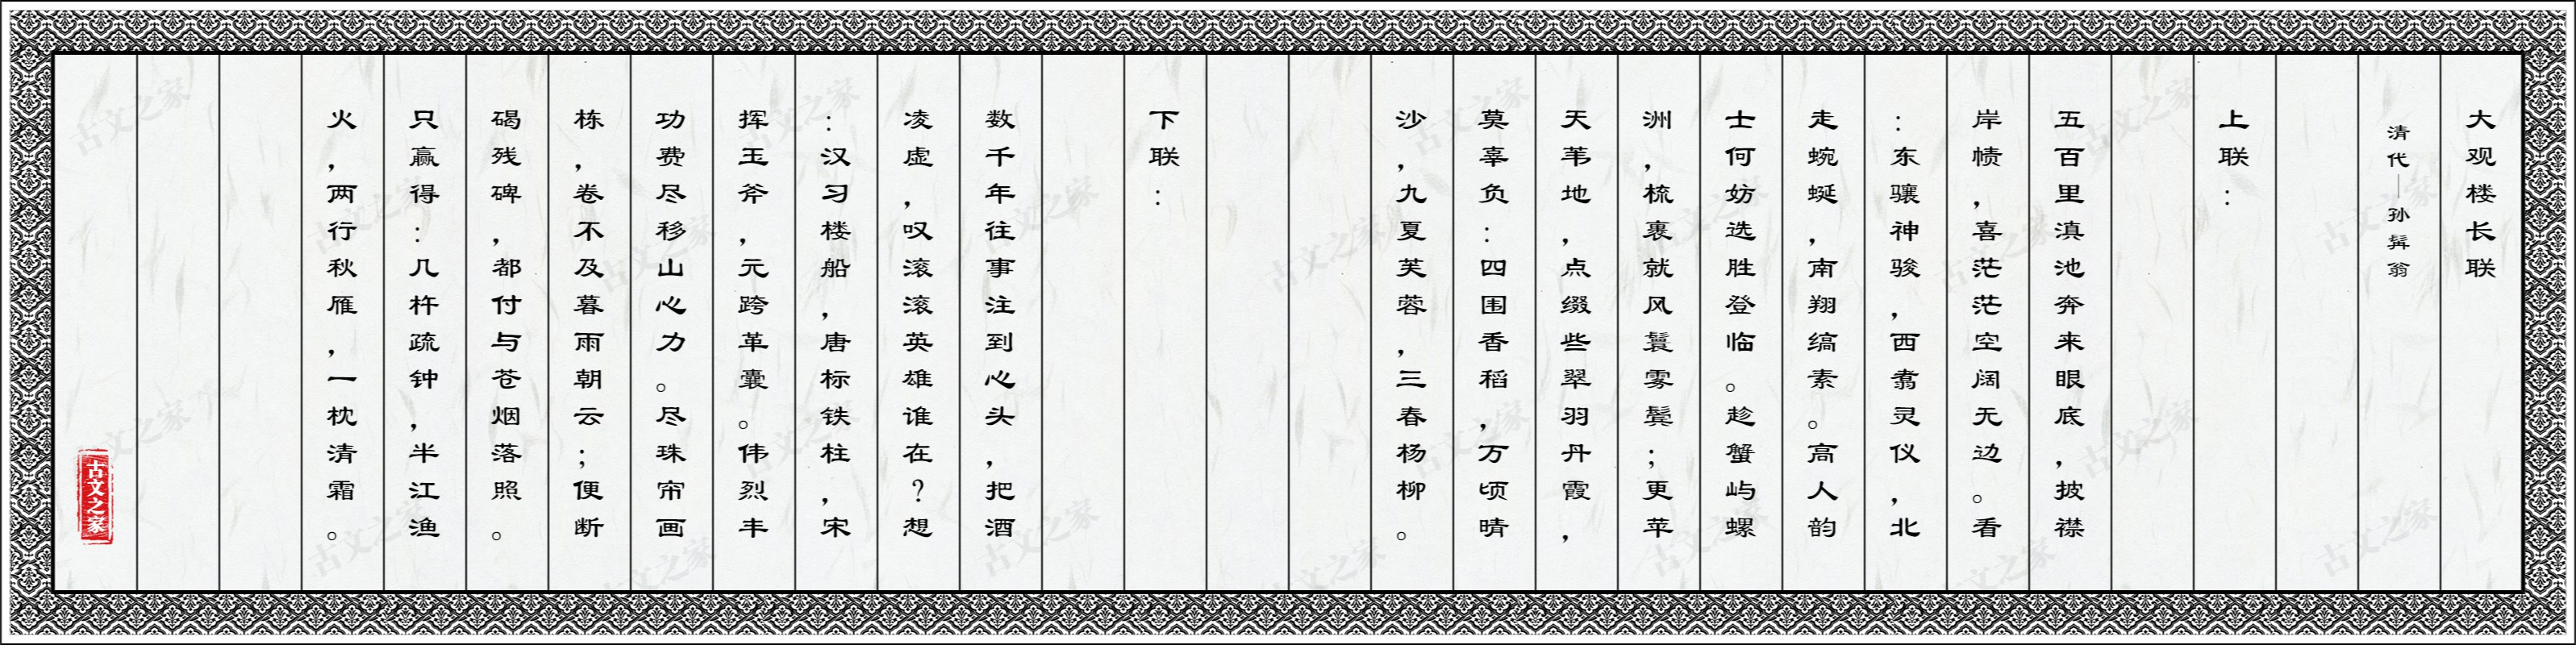 大观楼长联
清代—孙髯翁
上联：
五百里滇池奔来眼底，披襟
岸帻，喜茫茫空阔无边。看
：东骧神骏，西翥灵仪，北
走蜿蜒，南翔缟素。高人韵
士何妨选胜登临。趁蟹屿螺
洲，梳裹就风鬟雾鬓；更苹
天苇地，点缀些翠羽丹霞，
莫辜负：四围香稻，万顷晴
沙，九夏芙蓉，三春杨柳。
下联：
数千年往事注到心头，把酒
凌虚，叹滚滚英雄谁在？想
：汉习楼船，唐标铁柱，宋
挥玉斧，元跨革囊。伟烈丰
功费尽移山心力。尽珠帘画
栋，卷不及暮雨朝云；便断
碣残碑，都付与苍烟落照。
只赢得：几杵疏钟，半江渔
火，两行秋雁，一枕清霜。
古文之家